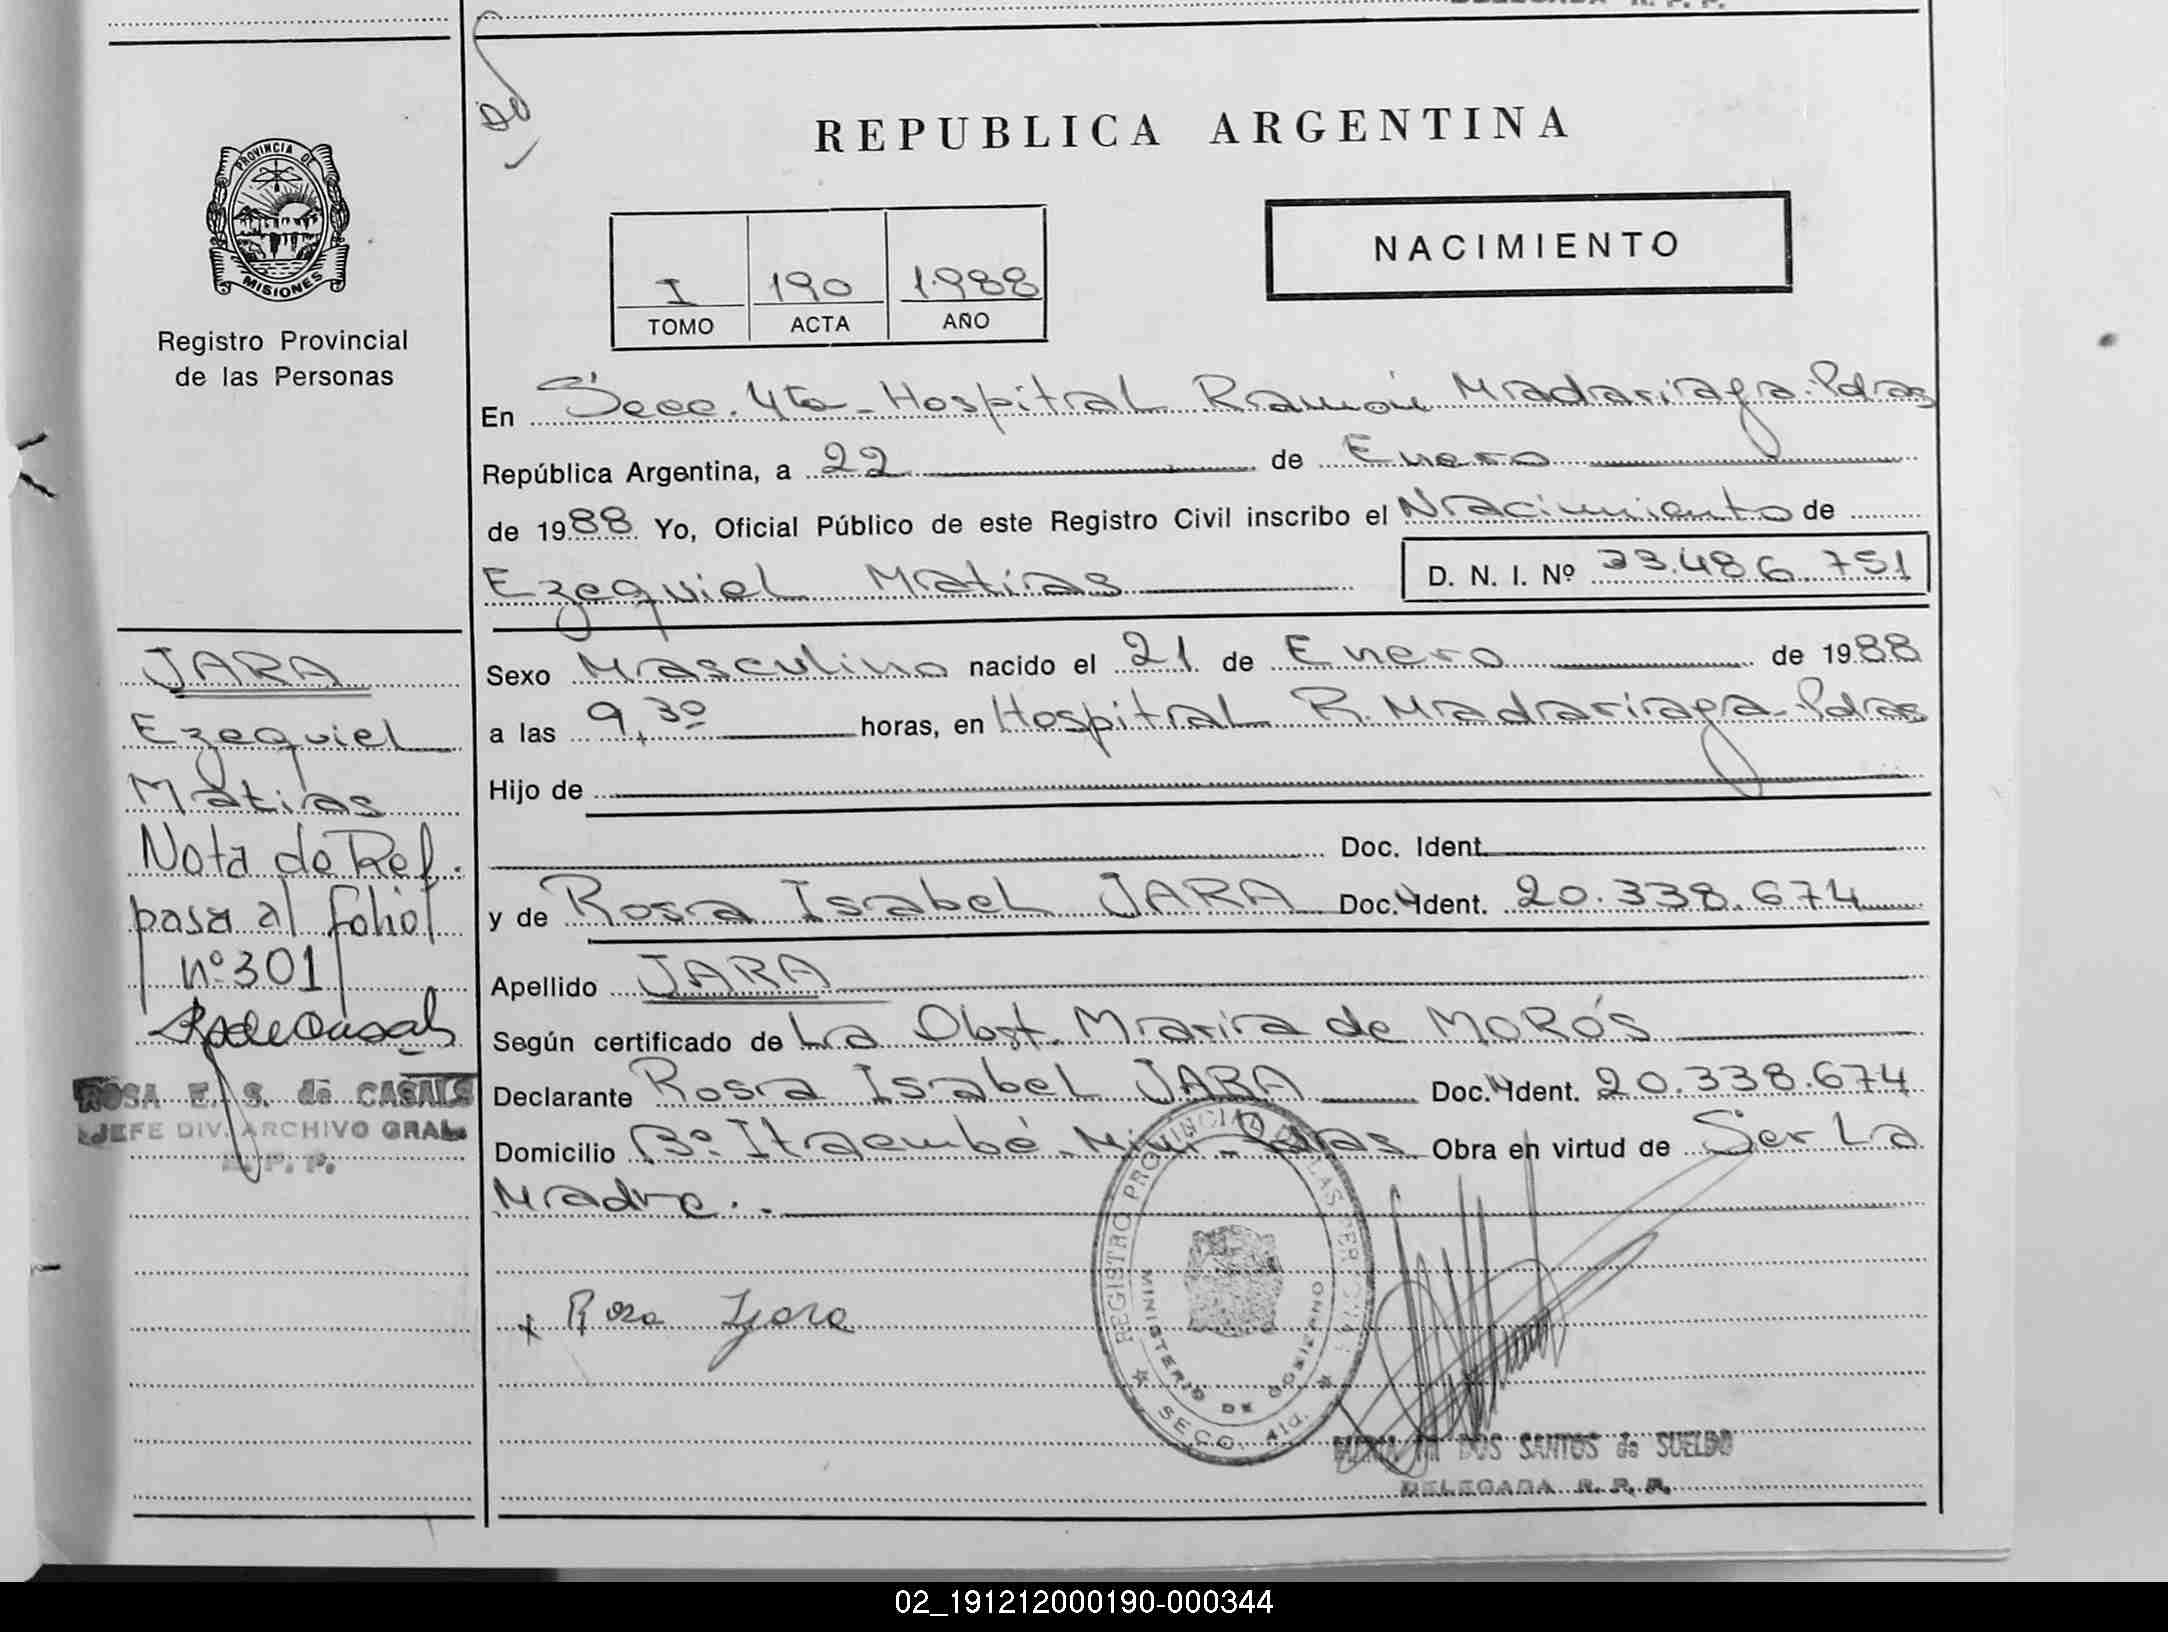 REPUBLICA ARGENTINA
NACIMIENTO
I 190 1988
TOMO ACTA AÑO
PROVINCIA DE
MISIONES
Registro Provincial
de las Personas
En Secc. 4ta - Hospital Ramón Madariaga - Pdas
República Argentina, a 22 de Enero
de 1988 Yo, Oficial Público de este Registro Civil inscribo el Nacimiento de
Ezequiel Matías D. N. I. Nº 33.486.751
Sexo Masculino nacido el 21 de Enero de 1988
a las 9,30 horas, en Hospital R. Madariaga - Pdas
Hijo de
Doc. Ident.
y de Rosa Isabel JARA Doc. Ident. 20.338.674
Apellido JARA
Según certificado de La Obst. María de MOROS
Declarante Rosa Isabel JARA Doc. Ident. 20.338.674
Domicilio Bº Itaembé - Miní - Pdas Obra en virtud de Ser La
Madre.
Rosa Jara
REGISTRO PROVINCIAL DE LAS PERSONAS
MINISTERIO DE GOBIERNO
SECC. 4ta.
DOS SANTOS de SUELDO
DELEGADA R. P. P.
JARA
Ezequiel
Matías
Nota de Ref.
pasa al folio
nº 301
ROSA E. S. de CASALS
JEFE DIV. ARCHIVO GRAL.
R. P. P.
02_191212000190-000344